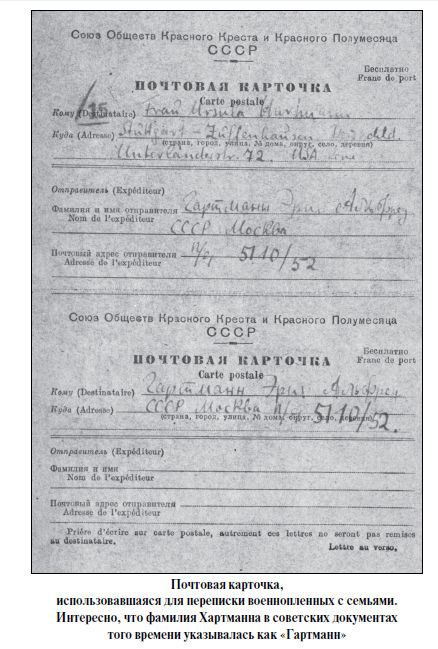 Союз Обществ Красного Креста и Красного Полумесяца
СССР
Бесплатно
Franc de port
ПОЧТОВАЯ КАРТОЧКА
Carte postale
15
Кому (Destinataire) Frau Ursula Hartmann
Куда (Adresse) Stuttgart - Zuffenhausen
(страна, город, улица, № дома, округ, село, деревня)
Unterländerstr. 72. USA
Отправитель (Expéditeur)
Фамилия и имя отправителя Гартманн Эрих Альфред
Nom de l'expéditeur
СССР Москва
Почтовый адрес отправителя п/я 5110/52
Adresse de l'expéditeur
Союз Обществ Красного Креста и Красного Полумесяца
СССР
Бесплатно
Franc de port
ПОЧТОВАЯ КАРТОЧКА
Carte postale
Кому (Destinataire) Гартманн Эрих Альфред
Куда (Adresse) СССР Москва п/я 5110/52.
(страна, город, улица, № дома, округ, село, деревня)
Отправитель (Expéditeur)
Фамилия и имя
Nom de l'expéditeur
Почтовый адрес отправителя
Adresse de l'expéditeur
Prière d'écrire sur carte postale, autrement ces lettres ne seront pas remises
au destinataire.
Lettre au verso.
Почтовая карточка,
использовавшаяся для переписки военнопленных с семьями.
Интересно, что фамилия Хартманна в советских документах
того времени указывалась как «Гартманн»